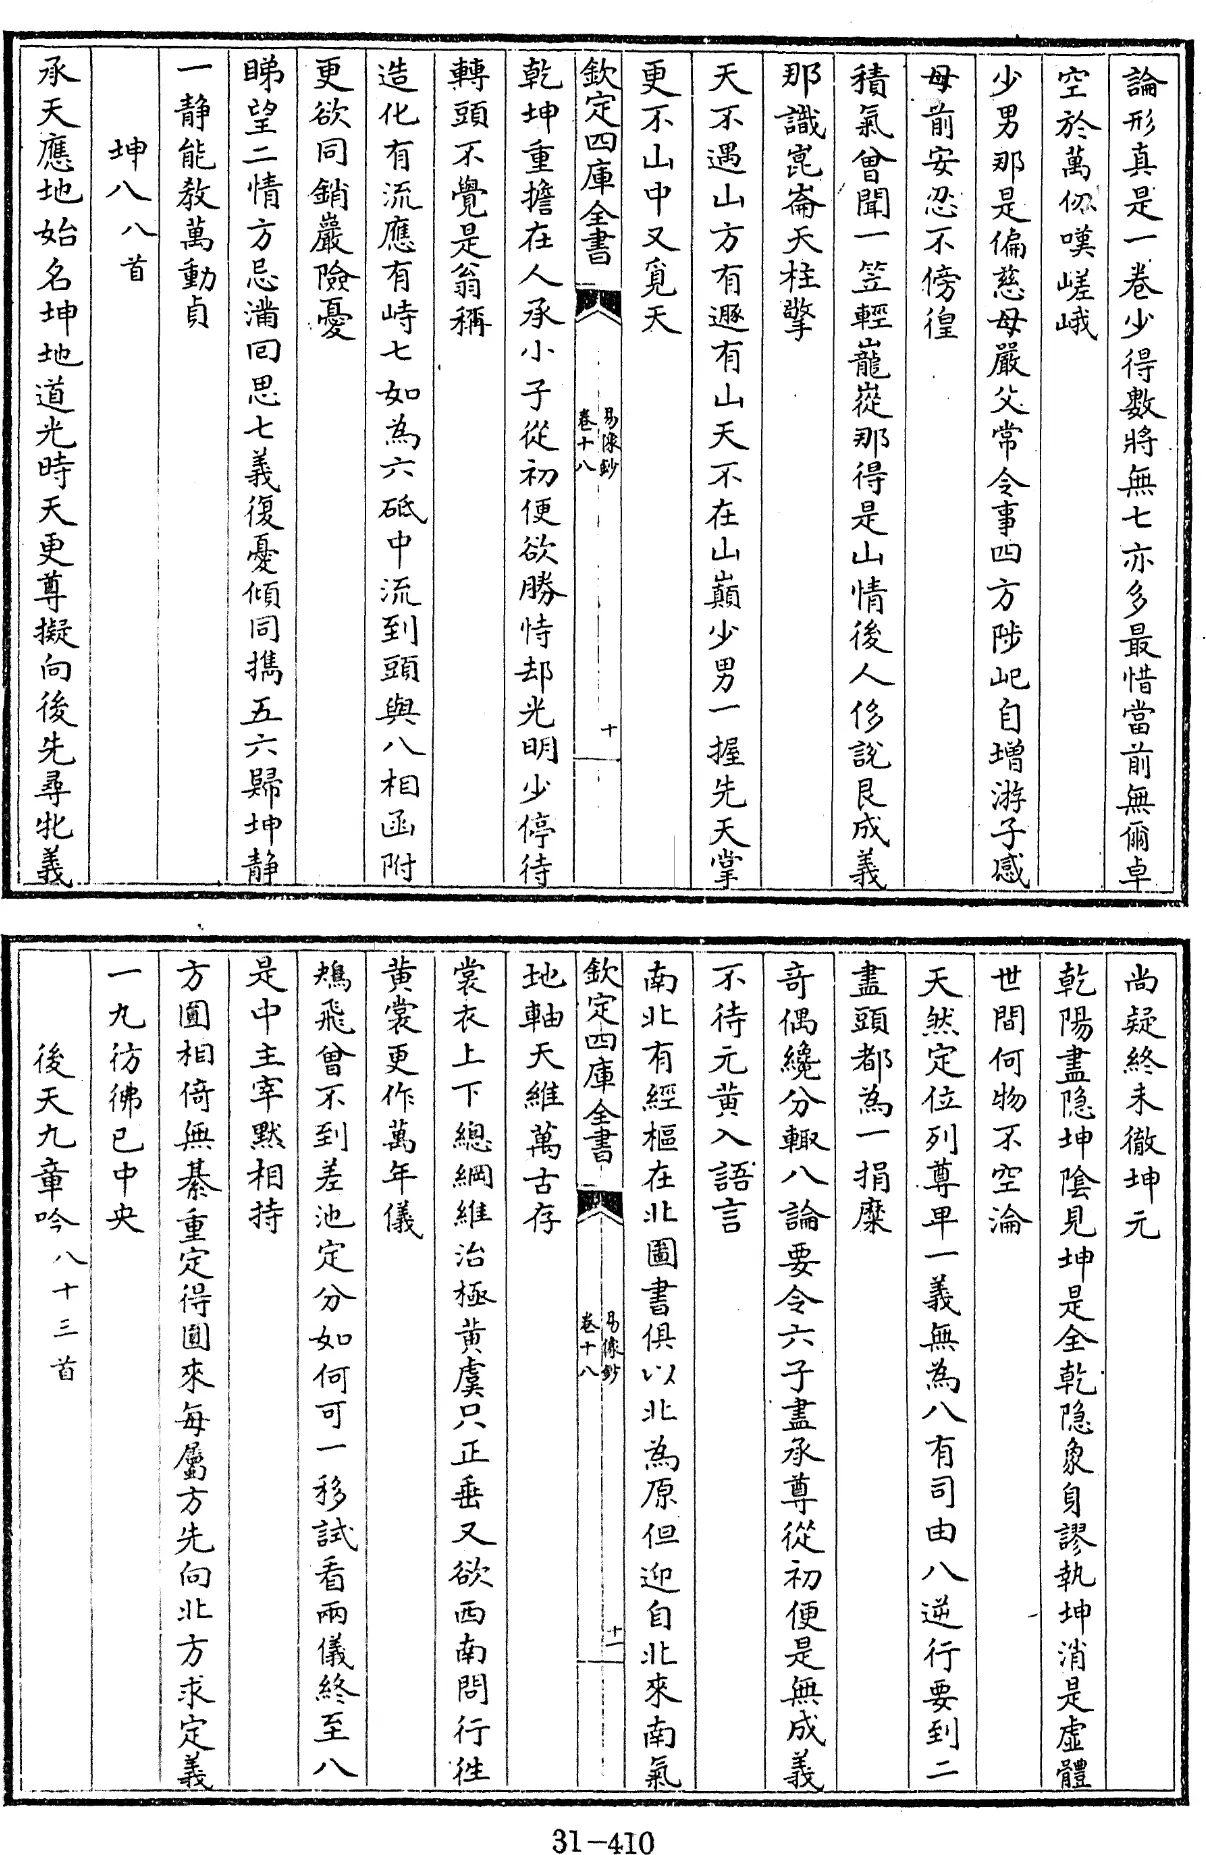 論形真是一卷少得數將無七亦多最惜當前無爾卓
空於萬仭嘆嵯峨
少男那是偏慈母嚴父常令事四方陟屺自増游子感
母前安忍不傍徨
積氣曾聞一笠輕巃嵸那得是山情後人侈説艮成義
那識崑崙天柱擎
天不遇山方有遯有山天不在山巔少男一握先天掌
更不山中又覓天
欽定四庫全書
易像鈔
卷十八
十
乾坤重擔在人承小子從初便欲勝恃却光明少停待
轉頭不覺是翁稱
造化有流應有峙七如為六砥中流到頭與八相函附
更欲同銷巖險憂
睇望二情方忌滿囘思七義復憂傾同攜五六歸坤静
一静能教萬動貞
坤八八首
承天應地始名坤地道光時天更尊擬向後先尋牝義
尚疑終未徹坤元
乾陽盡隐坤陰見坤是全乾隐象身謬執坤消是虛體
世間何物不空淪
天然定位列尊卑一義無為八有司由八逆行要到二
盡頭都為一捐糜
竒偶纔分輙八論要令六子盡承尊從初便是無成義
不待元黄入語言
南北有經樞在北圖書俱以北為原但迎自北來南氣
欽定四庫全書
易像鈔
卷十八
十一
地軸天維萬古存
裳衣上下總綱維治極黄虞只正垂又欲西南問行徃
黄裳更作萬年儀
鳩飛曾不到差池定分如何可一移試看兩儀終至八
是中主宰黙相持
方圓相倚無綦重定得圓來每屬方先向北方求定義
一九彷彿已中央
後天九章吟八十三首
31-410